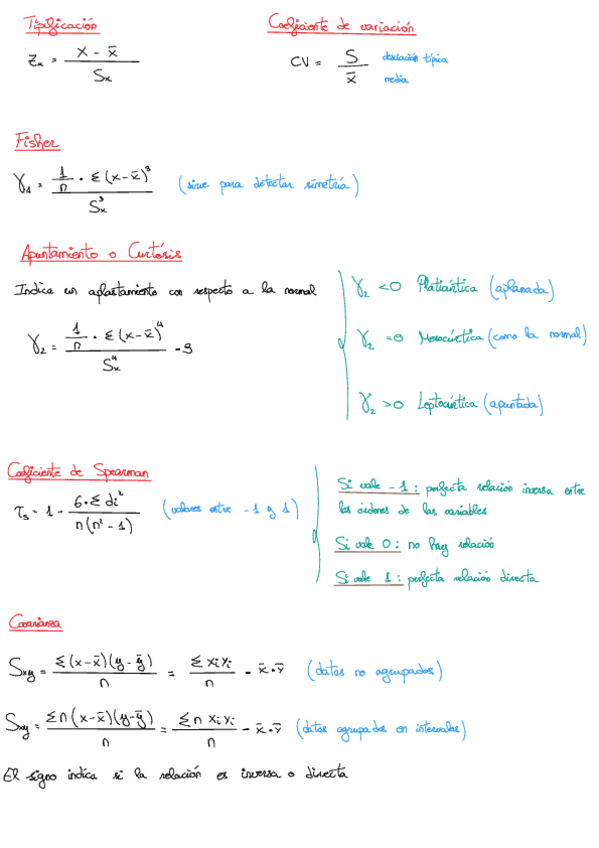 Tipificación
Zx = (x - x̄) / Sx
Coeficiente de variación
CV = S / x̄
desviación típica
media
Fisher
γ1 = (1/n · Σ(x-x̄)³) / Sx³ (sirve para detectar simetría)
Apuntamiento o Curtósis
Indica un aplastamiento con respecto a la normal
γ2 = (1/n · Σ(x-x̄)⁴) / Sx⁴ - 3
γ2 < 0 Platicúrtica (aplanada)
γ2 = 0 Mesocúrtica (como la normal)
γ2 > 0 Leptocúrtica (apuntada)
Coeficiente de Spearman
rs = 1 - (6·Σdi²) / (n(n²-1)) (valores entre -1 y 1)
Si vale -1: perfecta relación inversa entre
los órdenes de las variables
Si vale 0: no hay relación
Si vale 1: perfecta relación directa
Covarianza
Sxy = Σ(x-x̄)(y-ȳ) / n = Σxiyi / n - x̄·ȳ (datos no agrupados)
Sxy = Σn(x-x̄)(y-ȳ) / n = Σn xiyi / n - x̄·ȳ (datos agrupados en intervalos)
El signo indica si la relación es inversa o directa